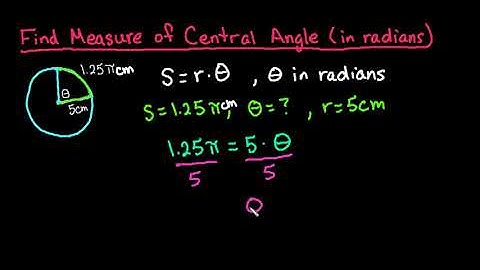 Find Measure of Central Angle (in radians)
1.25πcm
θ
5cm
S=r·θ , θ in radians
S=1.25πcm, θ=? , r=5cm
1.25π = 5·θ
5 5